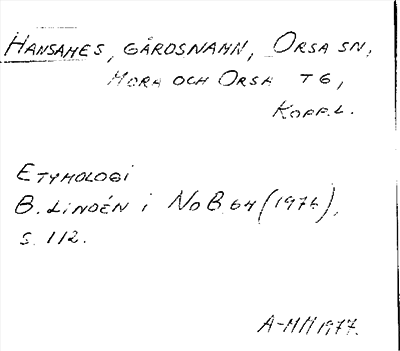 HANSAMES, GÅRDSNAMN, ORSA SN,
MORA OCH ORSA TG,
KOPP.L.
ETYMOLOGI
B. LINDÉN i NoB 64 (1976),
S. 112.
A-MM 1977.